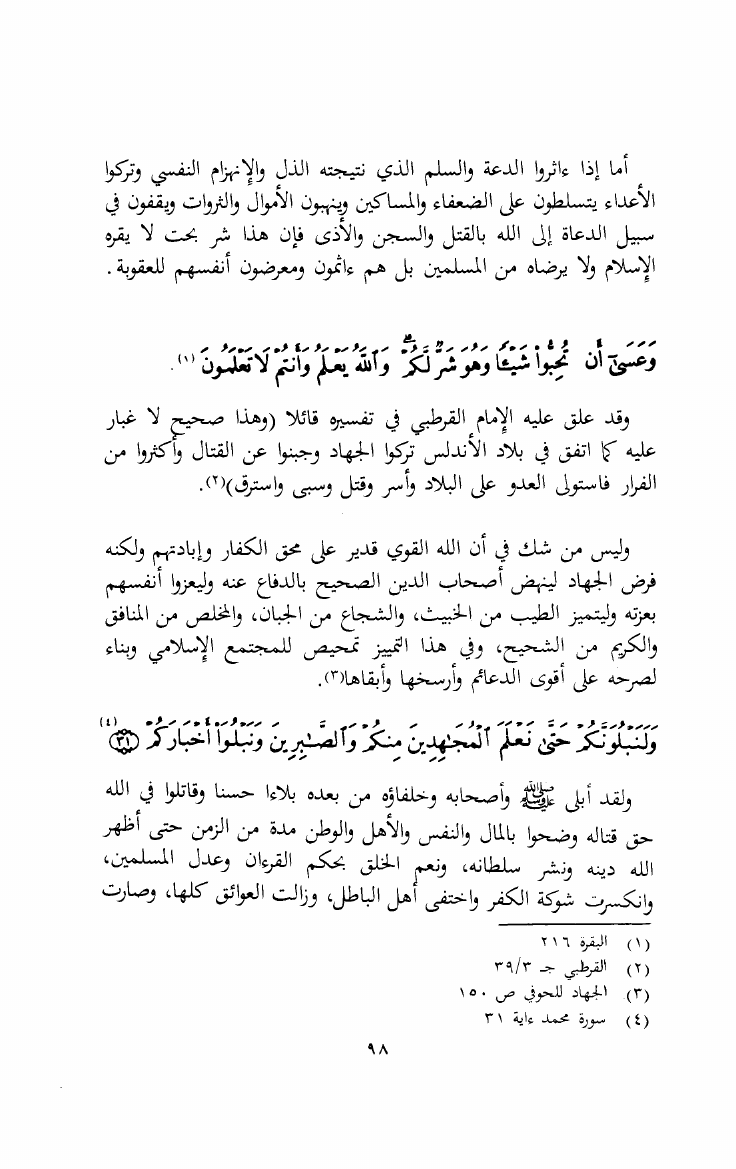 أما إذا ءاثروا الدعة والسلم الذي نتيجته الذل والإنهزام النفسي وتركوا
الأعداء يتسلطون على الضعفاء والمساكين وينهبون الأموال والثروات ويقفون في
سبيل الدعاة إلى الله بالقتل والسجن والأذى فإن هذا شر بحت لا يقره
الإسلام ولا يرضاه من المسلمين بل هم ءاثمون ومعرضون أنفسهم للعقوبة .
وَعَسَىٰٓ أَن تُحِبُّواْ شَيْـًٔا وَهُوَ شَرٌّ لَّكُمْۗ وَٱللَّهُ يَعْلَمُ وَأَنتُمْ لَا تَعْلَمُونَ (١).
وقد علق عليه الإمام القرطبي في تفسيره قائلا (وهذا صحيح لا غبار
عليه كما اتفق في بلاد الأندلس تركوا الجهاد وجبنوا عن القتال وأكثروا من
الفرار فاستولى العدو على البلاد وأسر وقتل وسبى واسترق)(٢).
وليس من شك في أن الله القوي قدير على محق الكفار وإبادتهم ولكنه
فرض الجهاد لينهض أصحاب الدين الصحيح بالدفاع عنه وليعزوا أنفسهم
بعزته وليتميز الطيب من الخبيث، والشجاع من الجبان، والمخلص من المنافق
والكريم من الشحيح، وفي هذا التمييز تمحيص للمجتمع الإسلامي وبناء
لصرحه على أقوى الدعائم وأرسخها وأبقاها(٣).
وَلَنَبْلُوَنَّكُمْ حَتَّىٰ نَعْلَمَ ٱلْمُجَـٰهِدِينَ مِنكُمْ وَٱلصَّـٰبِرِينَ وَنَبْلُوَاْ أَخْبَارَكُمْ ٣١ (٤)
ولقد أبلى ﷺ وأصحابه وخلفاؤه من بعده بلاءا حسنا وقاتلوا في الله
حق قتاله وضحوا بالمال والنفس والأهل والوطن مدة من الزمن حتى أظهر
الله دينه ونشر سلطانه، ونعم الخلق بحكم القرءان وعدل المسلمين،
وانكسرت شوكة الكفر واختفى أهل الباطل، وزالت العوائق كلها، وصارت
(١) البقرة ٢١٦
(٢) القرطبي جـ ٣٩/٣
(٣) الجهاد للحوفي ص ١٥٠
(٤) سورة محمد ءاية ٣١
٩٨